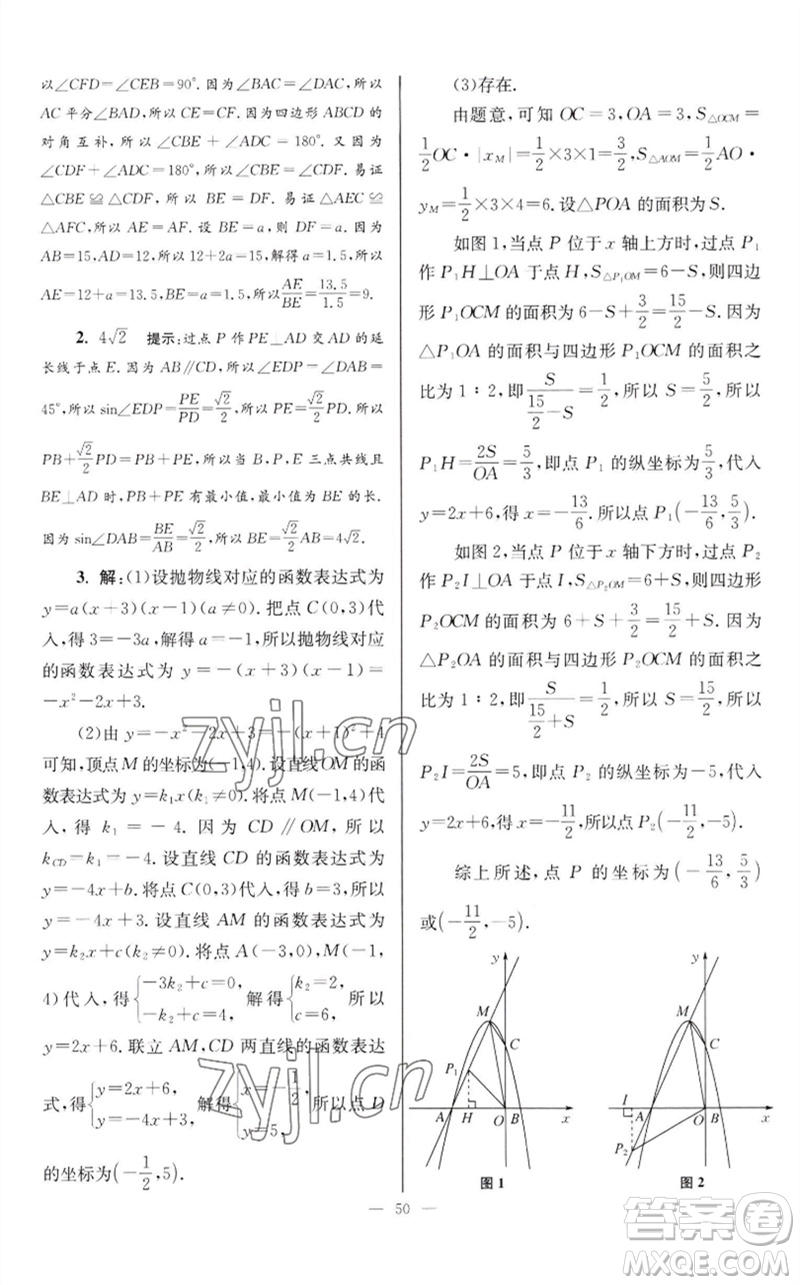 以∠CFD=∠CEB=90°. 因为∠BAC=∠DAC, 所以
AC 平分∠BAD, 所以 CE=CF. 因为四边形 ABCD 的
对角互补, 所以 ∠CBE + ∠ADC = 180°. 又因为
∠CDF + ∠ADC = 180°, 所以 ∠CBE = ∠CDF. 易证
△CBE ≌ △CDF, 所以 BE = DF. 易证 △AEC ≌
△AFC, 所以 AE = AF. 设 BE = a, 则 DF = a. 因为
AB=15, AD=12, 所以 12+2a=15, 解得 a=1.5, 所以
AE=12+a=13.5, BE=a=1.5, 所以 AE/BE = 13.5/1.5 = 9.
2. 4√2 提示: 过点 P 作 PE⊥AD 交 AD 的延
长线于点 E. 因为 AB∥CD, 所以 ∠EDP=∠DAB=
45°, 所以 sin∠EDP = PE/PD = √2/2, 所以 PE = √2/2 PD. 所以
PB + √2/2 PD = PB + PE, 所以当 B, P, E 三点共线且
BE⊥AD 时, PB+PE 有最小值, 最小值为 BE 的长.
因为 sin∠DAB = BE/AB = √2/2, 所以 BE = √2/2 AB = 4√2.
3. 解: (1) 设抛物线对应的函数表达式为
y=a(x+3)(x-1)(a≠0). 把点 C(0,3) 代
入, 得 3=-3a, 解得 a=-1, 所以抛物线对应
的函数表达式为 y = -(x+3)(x-1) =
-x²-2x+3.
(2) 由 y=-x²-2x+3=-(x+1)²+4
可知, 顶点 M 的坐标为(-1,4). 设直线 OM 的函
数表达式为 y=k₁x(k₁≠0). 将点 M(-1,4)代
入, 得 k₁ = -4. 因为 CD∥OM, 所以
k_CD=k₁=-4. 设直线 CD 的函数表达式为
y=-4x+b. 将点 C(0,3)代入, 得 b=3, 所以
y=-4x+3. 设直线 AM 的函数表达式为
y=k₂x+c(k₂≠0). 将点 A(-3,0), M(-1,
4)代入, 得 {-3k₂+c=0, -k₂+c=4, 解得 {k₂=2, c=6, 所以
y=2x+6. 联立 AM, CD 两直线的函数表达
式, 得 {y=2x+6, y=-4x+3, 解得 {x=-1/2, y=5, 所以点 D
的坐标为(-1/2, 5).
(3) 存在.
由题意, 可知 OC=3, OA=3, S△OCM =
1/2 OC·|x_M| = 1/2×3×1 = 3/2, S△AOM = 1/2 AO·
y_M = 1/2×3×4=6. 设△POA 的面积为 S.
如图 1, 当点 P 位于 x 轴上方时, 过点 P₁
作 P₁H⊥OA 于点 H, S△P₁OM=6-S, 则四边
形 P₁OCM 的面积为 6-S+3/2=15/2-S. 因为
△P₁OA 的面积与四边形 P₁OCM 的面积之
比为 1∶2, 即 S/(15/2-S) = 1/2, 所以 S=5/2, 所以
P₁H = 2S/OA = 5/3, 即点 P₁ 的纵坐标为 5/3, 代入
y=2x+6, 得 x=-13/6. 所以点 P₁(-13/6, 5/3).
如图 2, 当点 P 位于 x 轴下方时, 过点 P₂
作 P₂I⊥OA 于点 I, S△P₂OM=6+S, 则四边形
P₂OCM 的面积为 6+S+3/2=15/2+S. 因为
△P₂OA 的面积与四边形 P₂OCM 的面积之
比为 1∶2, 即 S/(15/2+S) = 1/2, 所以 S=15/2, 所以
P₂I = 2S/OA = 5, 即点 P₂ 的纵坐标为-5, 代入
y=2x+6, 得 x=-11/2, 所以点 P₂(-11/2, -5).
综上所述, 点 P 的坐标为 (-13/6, 5/3)
或(-11/2, -5).
y
M
C
P₁
A
H
O
B
x
图 1
y
M
C
I
A
O
B
x
P₂
图 2
— 50 —
zyjl.cn
zyjl.cn
答案圈
MXQE.COM